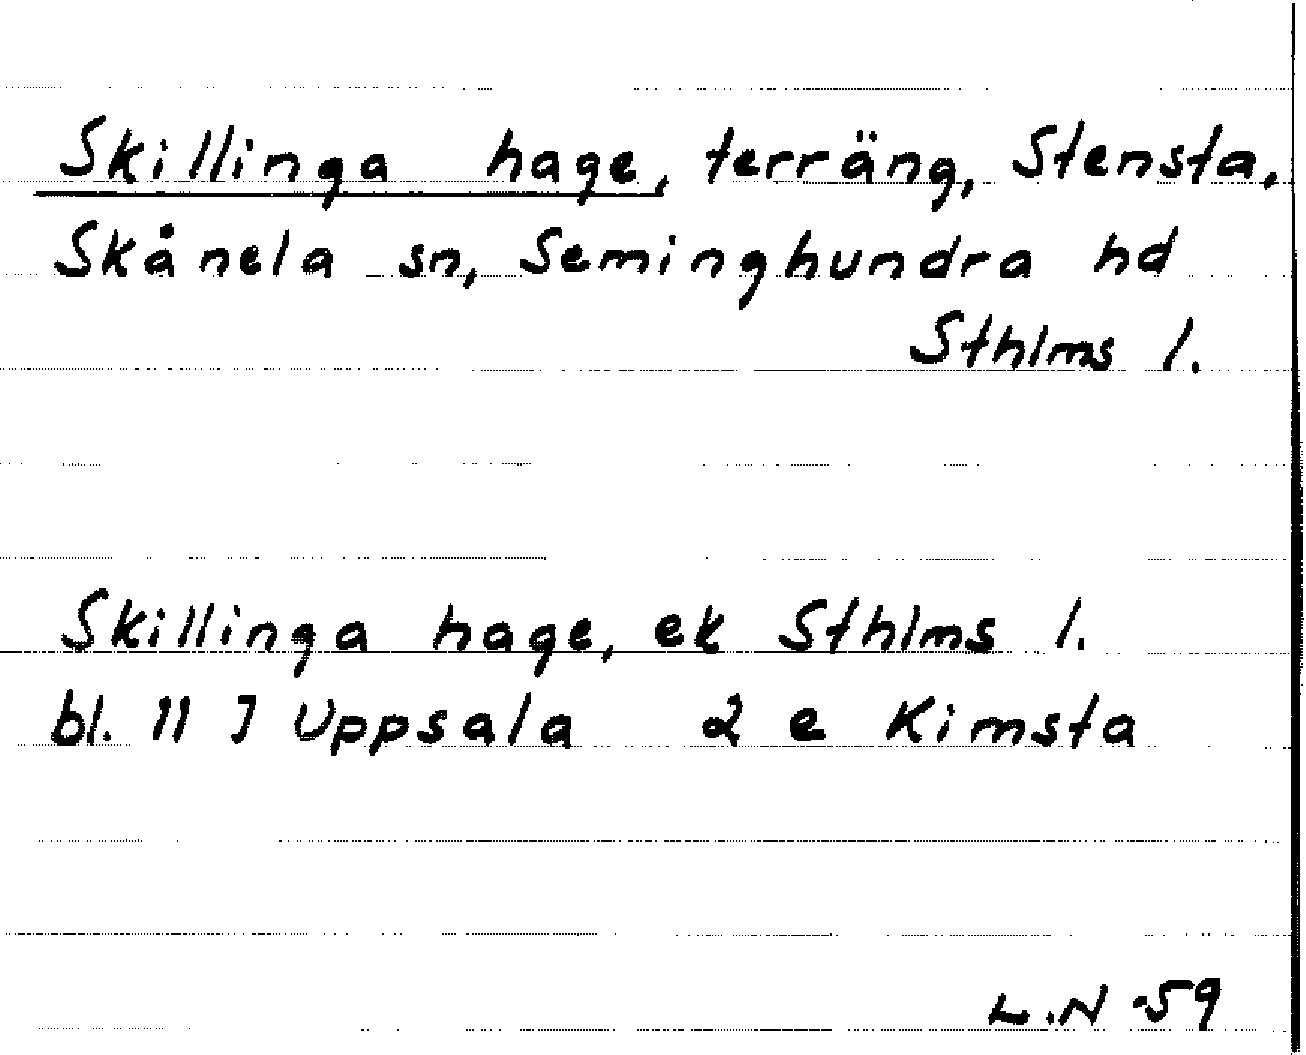 Skillinga hage, terräng, Stensta,
Skånela sn, Seminghundra hd
Sthlms l.
Skillinga hage, ek Sthlms l.
bl. 11 I Uppsala 2 e Kimsta
L.N -59